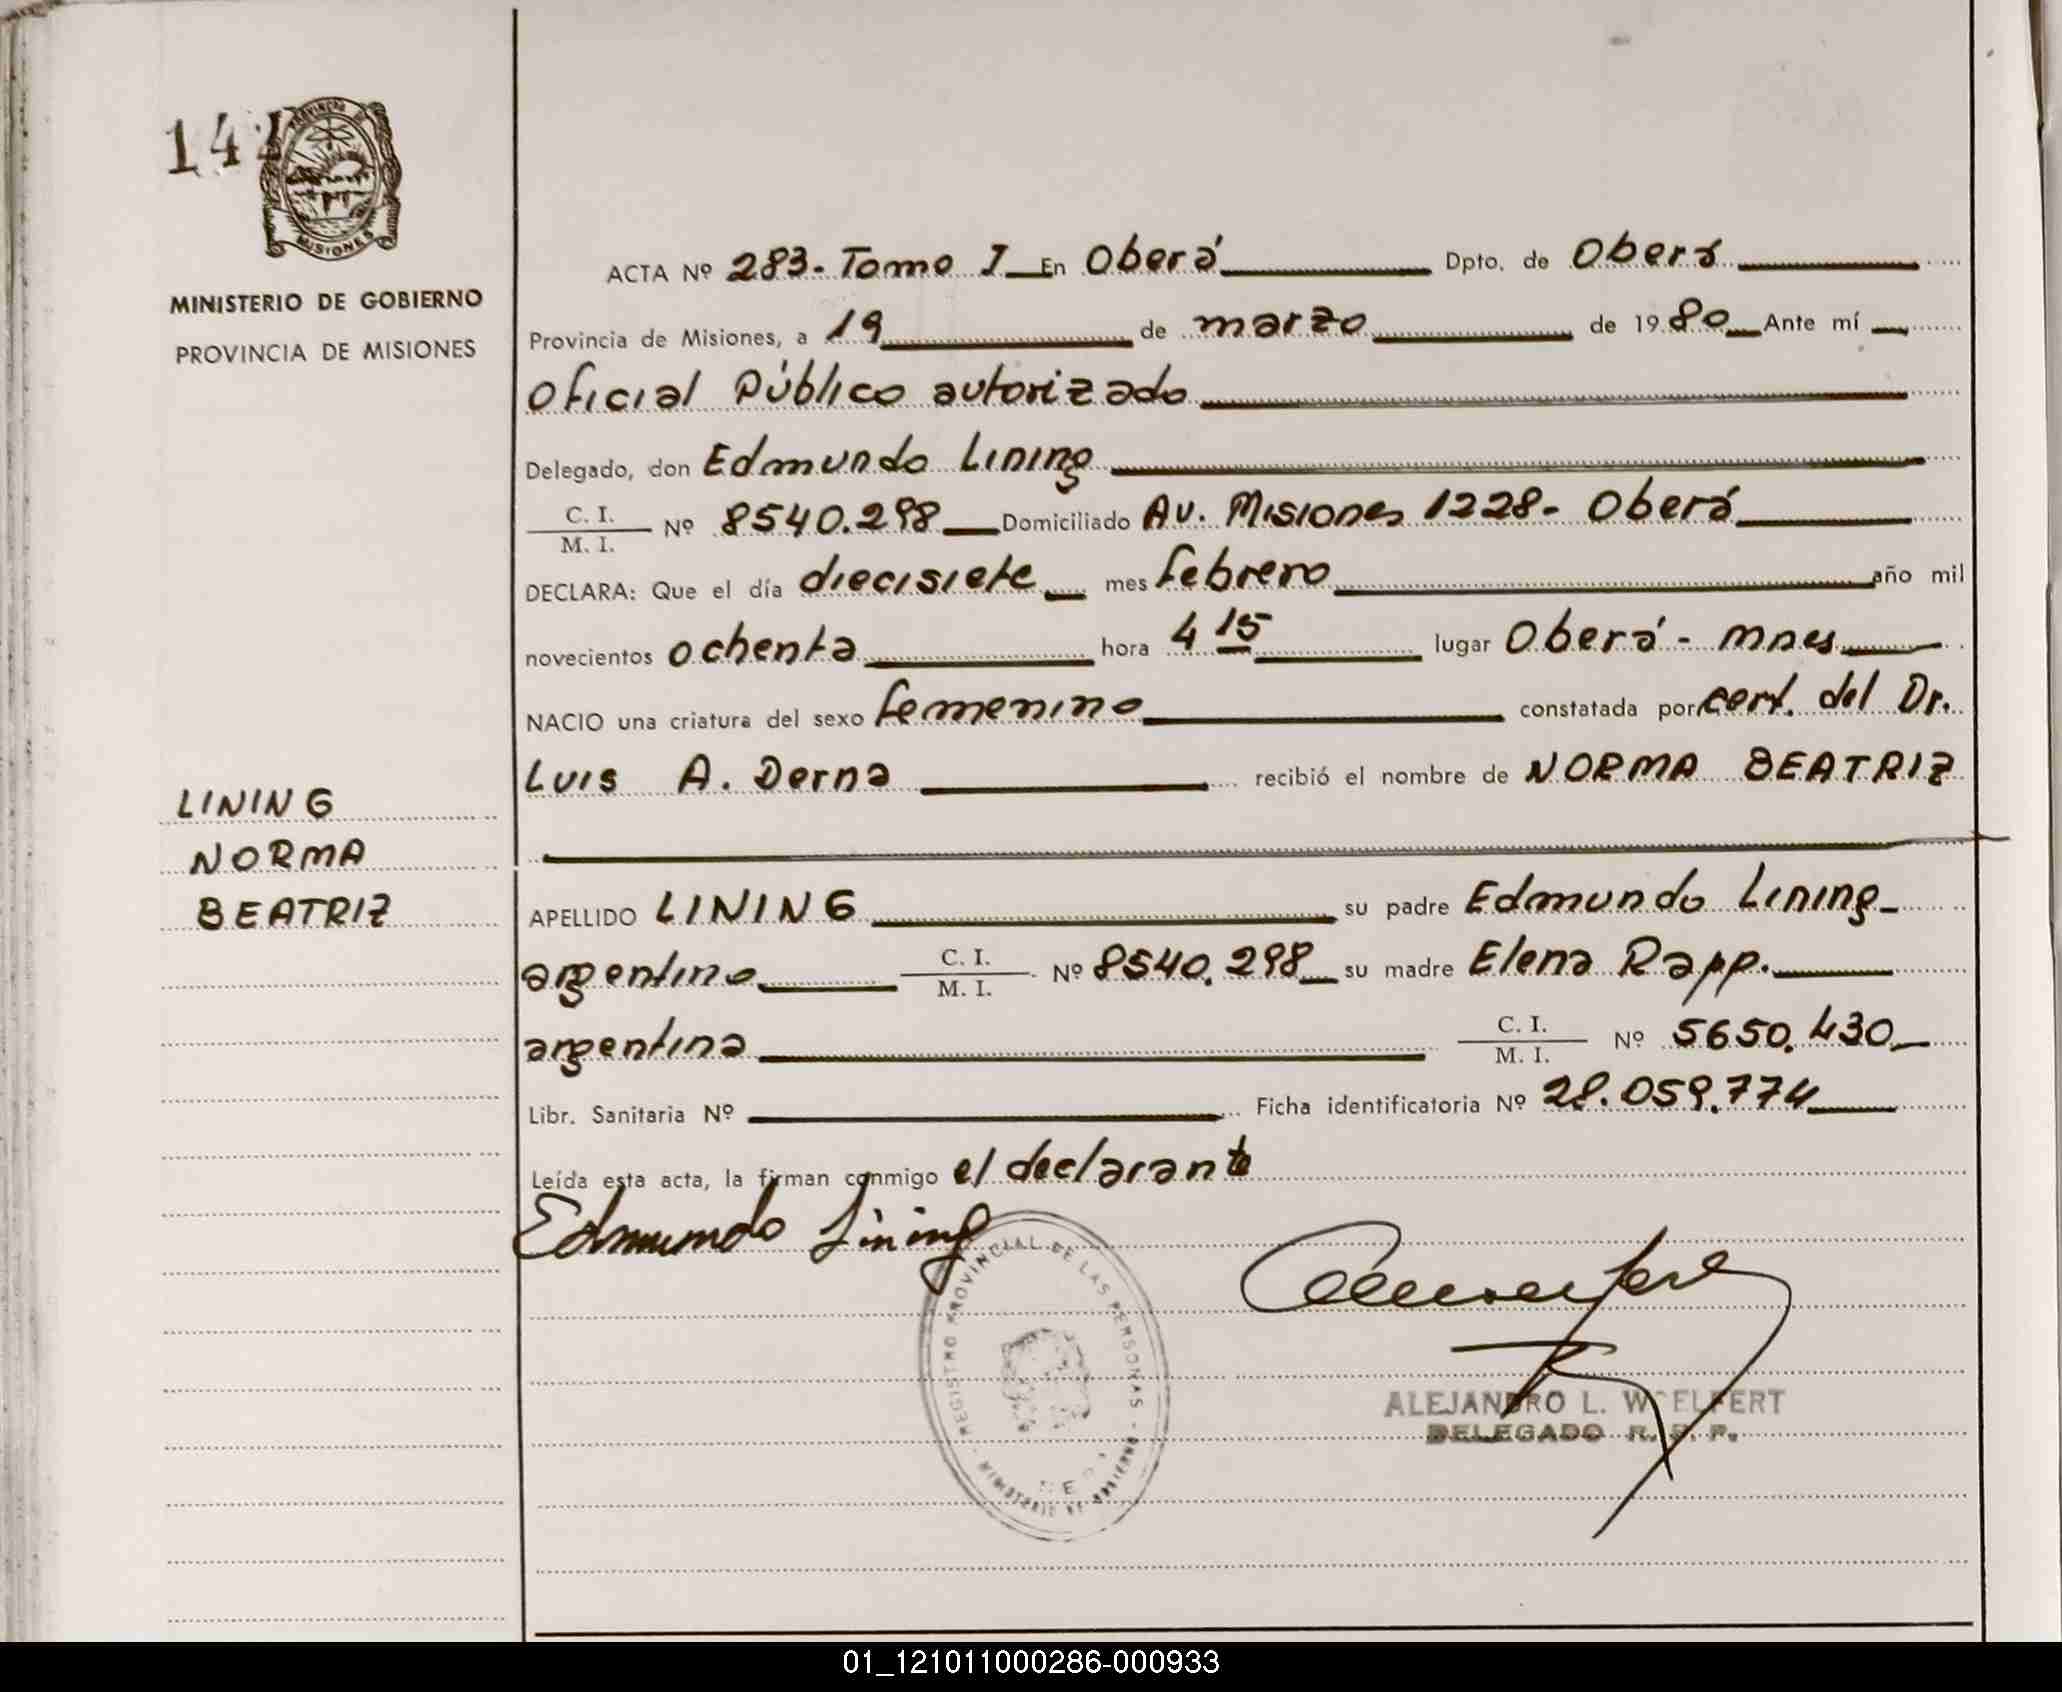 14
PROVINCIA DE
MISIONES
MINISTERIO DE GOBIERNO
PROVINCIA DE MISIONES
LINING
NORMA
BEATRIZ
ACTA Nº 283- Tomo I En Oberá Dpto. de Oberá
Provincia de Misiones, a 19 de marzo de 1980 Ante mí
Oficial Público autorizado
Delegado, don Edmundo Lining
C. I. / M. I. Nº 8540.298 Domiciliado Av. Misiones 1228- Oberá
DECLARA: Que el día diecisiete mes febrero año mil
novecientos ochenta hora 4 15 lugar Oberá - Mnes
NACIO una criatura del sexo femenino constatada por cert. del Dr.
Luis A. Derna recibió el nombre de NORMA BEATRIZ
APELLIDO LINING su padre Edmundo Lining
argentino C. I. / M. I. Nº 8540.298 su madre Elena Rapp.
argentina C. I. / M. I. Nº 5650.430
Libr. Sanitaria Nº Ficha identificatoria Nº 28.059.774
Leída esta acta, la firman conmigo el declarante
Edmundo Lining
REGISTRO PROVINCIAL DE LAS PERSONAS - MINISTERIO DE GOBIERNO
ALEJANDRO L. WOELFERT
DELEGADO R. P. P.
01_121011000286-000933